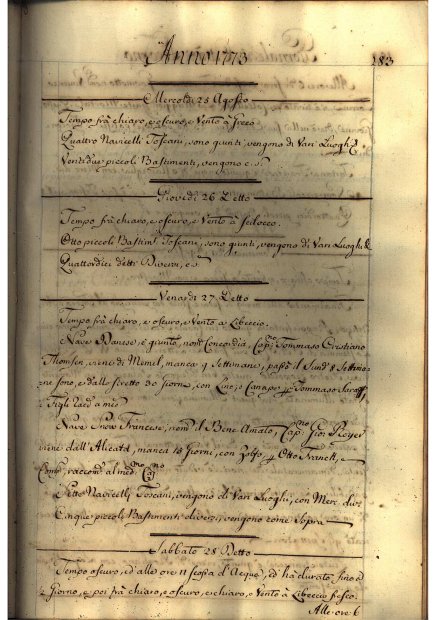 Anno 1773
183
Mercoldi 25 Agosto
Tempo frà chiaro, e oscuro, e Vento à Greco
Quattro Navicelli Toscani, sono giunti, vengono di Vari Luoghi
Ventidue piccoli Bastimenti, vengono
Giovedi 26 Detto
Tempo frà chiaro, e oscuro, e Vento à Scilocco
Otto piccoli Bastim.ti Toscani, sono giunti, vengono di Vari Luoghi &
Quattordici detti Diversi,
Venardi 27 Detto
Tempo frà chiaro, e oscuro, e Vento a Libeccio
Nave Danese è giunto, nom.ta Concordia, Cap.no Tommaso Cristiano
Thomsen, viene di Memel, manca 9 Settimane, passò il Sund 8 Settima
ne sono, e dallo stretto 20 giorni, con Lino, e Canapa p Tommaso
Figli
Nave Francese, nom.ta il Bene Amato, Cap.no Gio:
viene dall'Alicata, manca 18 giorni, con Zolfo, p Otto Franck, e
Comp. raccond. al med.mo Cap.no
Sette Navicelli Toscani, vengono di Vari Luoghi, con Merc.
Cinque piccoli Bastimenti diversi, vengono come Sopra
Sabbato 28 Detto
Tempo oscuro, ed alle ore 11 scossa d'Acque, ed ha durato, fino a
Giorno, e poi frà chiaro, e oscuro, e chiaro, e Vento à Libeccio fresco
Alle ore 6